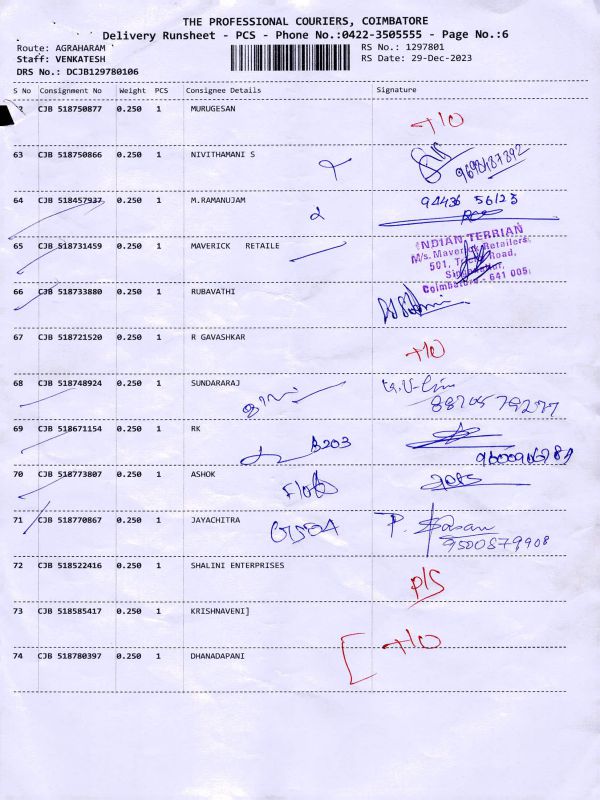 THE PROFESSIONAL COURIERS, COIMBATORE
Delivery Runsheet - PCS - Phone No.:0422-3505555 - Page No.:6
Route: AGRAHARAM RS No.: 1297801
Staff: VENKATESH RS Date: 29-Dec-2023
DRS No.: DCJB129780106
S No Consignment No Weight PCS Consignee Details Signature
CJB 518750877 0.250 1 MURUGESAN
63 CJB 518750866 0.250 1 NIVITHAMANI S
64 CJB 518457937 0.250 1 M.RAMANUJAM 94436 56123
65 CJB 518731459 0.250 1 MAVERICK RETAILE
INDIAN TERRIAN
M/s. Maverick Retailers
501, Road,
Coimbatore - 641 005
66 CJB 518733880 0.250 1 RUBAVATHI
67 CJB 518721520 0.250 1 R GAVASHKAR
68 CJB 518748924 0.250 1 SUNDARARAJ
69 CJB 518671154 0.250 1 RK
B203
70 CJB 518773807 0.250 1 ASHOK
71 CJB 518770867 0.250 1 JAYACHITRA
9500879908
72 CJB 518522416 0.250 1 SHALINI ENTERPRISES
P/S
73 CJB 518585417 0.250 1 KRISHNAVENI]
74 CJB 518780397 0.250 1 DHANADAPANI